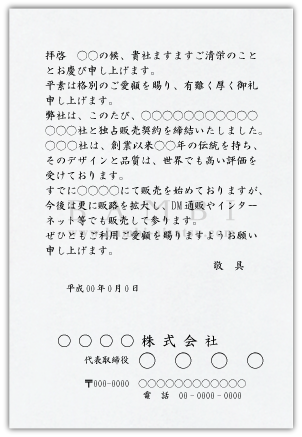 拝啓　○○の候、貴社ますますご清栄のこと
とお慶び申し上げます。
平素は格別のご愛顧を賜り、有難く厚く御礼
申し上げます。
弊社は、このたび、○○○○○○○○○○○
○○○社と独占販売契約を締結いたしました。
○○○社は、創業以来○○年の伝統を持ち、
そのデザインと品質は、世界でも高い評価を
受けております。
すでに○○○○にて販売を始めておりますが、
今後は更に販路を拡大し、DM通販やインター
ネット等でも販売して参ります。
ぜひともご利用ご愛顧を賜りますようお願い
申し上げます。
敬　具
平成00年0月0日
○○○○株式会社
代表取締役　○　○　○　○
〒000-0000　○○○○○○○○○○○○
電　話　00-0000-0000